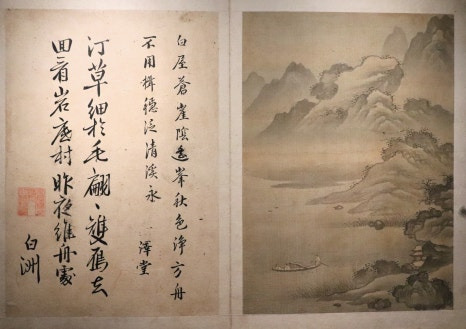 白屋蒼崖陰遠峯秋色淨方舟
不用楫穩泛清溪永
澤堂
汀草細於毛翩〻雙鴈去
回看岩底村昨夜維舟處
白洲